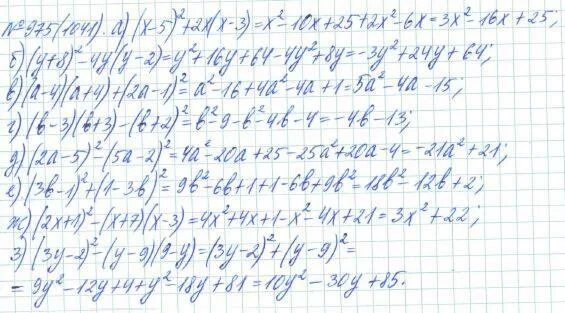 №975(1041). а) (x-5)²+2x(x-3)=x²-10x+25+2x²-6x=3x²-16x+25;
б) (y+8)²-4y(y-2)=y²+16y+64-4y²+8y=-3y²+24y+64;
в) (a-4)(a+4)+(2a-1)²=a²-16+4a²-4a+1=5a²-4a-15;
г) (b-3)(b+3)-(b+2)²=b²-9-b²-4b-4=-4b-13;
д) (2a-5)²-(5a-2)²=4a²-20a+25-25a²+20a-4=-21a²+21;
е) (3b-1)²+(1-3b)²=9b²-6b+1+1-6b+9b²=18b²-12b+2;
ж) (2x+1)²-(x+7)(x-3)=4x²+4x+1-x²-4x+21=3x²+22;
з) (3y-2)²-(y-9)(9-y)=(3y-2)²+(y-9)²=
=9y²-12y+4+y²-18y+81=10y²-30y+85.